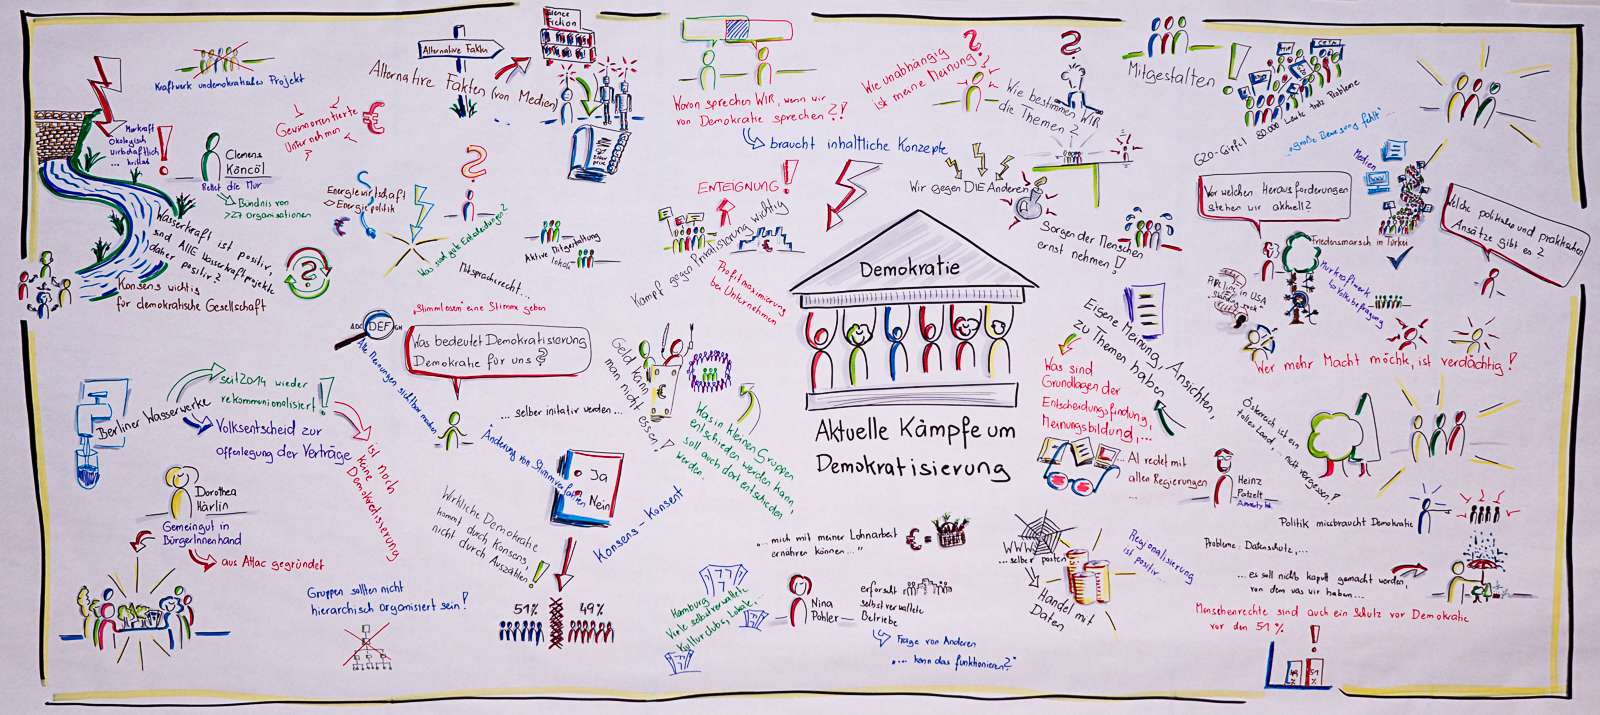 Kraftwerk undemokratisches Projekt
Gewinnorientierte
Unternehmen
€
Murkraft
Ökologisch
Wirtschaftlich
... kritisch
!
Clemens
Könczöl
Rettet die Mur
Bündnis von
>27 Organisationen
Wasserkraft ist positiv,
sind ALLE Wasserkraftprojekte
daher positiv?
Konsens wichtig
für demokratische Gesellschaft
?
Energiewirtschaft
Energiepolitik
€
?
Was sind gute Entscheidungen?
Mitspracherecht...
Mitgestaltung
Aktive lokal
Stimmlosen eine Stimme geben
Alternative Fakten
Alternative Fakten (von Medien)
Science
Fiction
Woron sprechen WIR, wenn wir
von Demokratie sprechen?!
braucht inhaltliche Konzepte
Wie unabhängig
ist meine Meinung?
?
Wie bestimmen WIR
die Themen?
?
Mitgestalten
!
TTIP
CETA
G20-Gipfel
80.000 Leute
trotz Probleme
"große Bewegung fehlt"...
Medien
ENTEIGNUNG!
Kampf gegen Privatisierung wichtig
€
Profitmaximierung
bei Unternehmen
Wir gegen DIE Anderen
Sorgen der Menschen
ernst nehmen!
Vor welchen Herausforderungen
stehen wir aktuell?
Welche politischen und praktischen
Ansätze gibt es?
Friedensmarsch in Türkei
Pipeline in USA
Standing Rock
Murkraftwerk
Volksbefragung
Wer mehr Macht möchte, ist verdächtig!
Demokratie
Aktuelle Kämpfe um
Demokratisierung
ABC DEF GH
Alle Meinungen sichtbar machen
Was bedeutet Demokratisierung
Demokratie für uns?
... selber initiativ werden...
Geld kann
man nicht
essen!
€
Was in kleinen Gruppen
entschieden werden kann,
soll auch dort entschieden
werden.
Eigene Meinung, Ansichten,
zu Themen haben
Was sind
Grundlagen der
Entscheidungsfindung,
Meinungsbildung,...
AI redet mit
allen Regierungen
...
Heinz
Patzelt
Amnesty Int.
Österreich ist ein
tolles Land,... nicht vergessen!
Berliner Wasserwerke
seit 2014 wieder
rekommunalisiert!
Volksentscheid zur
Offenlegung der Verträge
ist noch
keine
Demokratisierung
Dorothea
Härlin
Gemeingut in
BürgerInnenhand
aus Attac gegründet
Gruppen sollten nicht
hierarchisch organisiert sein!
Änderung von Stimmverfahren
Ja
Nein
Konsens - Konsent
Wirkliche Demokratie
kommt durch Konsens,
nicht durch Auszählen!
51%
49%
"...mich mit meiner Lohnarbeit
ernähren können..."
€ =
Hamburg
Viele selbstverwaltete
Kulturclubs, Lokale,...
Nina
Pohler
erforscht
selbstverwaltete
Betriebe
Frage von Anderen
"... kann das funktionieren?"
WWW
... selber posten
Handel mit
Daten
Regionalisierung
ist
positiv...
Politik missbraucht Demokratie
Probleme: Datenschutz,...
...es soll nichts kaputt gemacht werden,
von dem was wir haben...
Menschenrechte sind auch ein Schutz vor Demokratie
vor den 51%
!
49
%
51
%